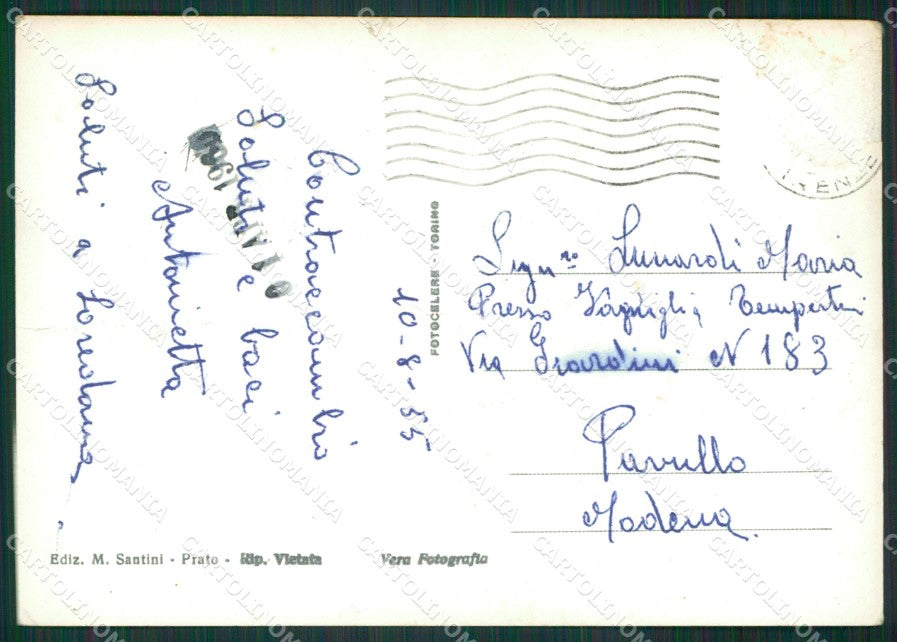 10-8-55
Contraccambio
Saluti e baci
Antonietta
Saluti a Loredana
FIRENZE
FOTOCELERE - TORINO
Sign.na Lunardi Maria
Presso Famiglia
Via Giardini N 183
Pavullo
Modena
Ediz. M. Santini - Prato - Rip. Vietata
Vera Fotografia
CARTOLINOMANIA